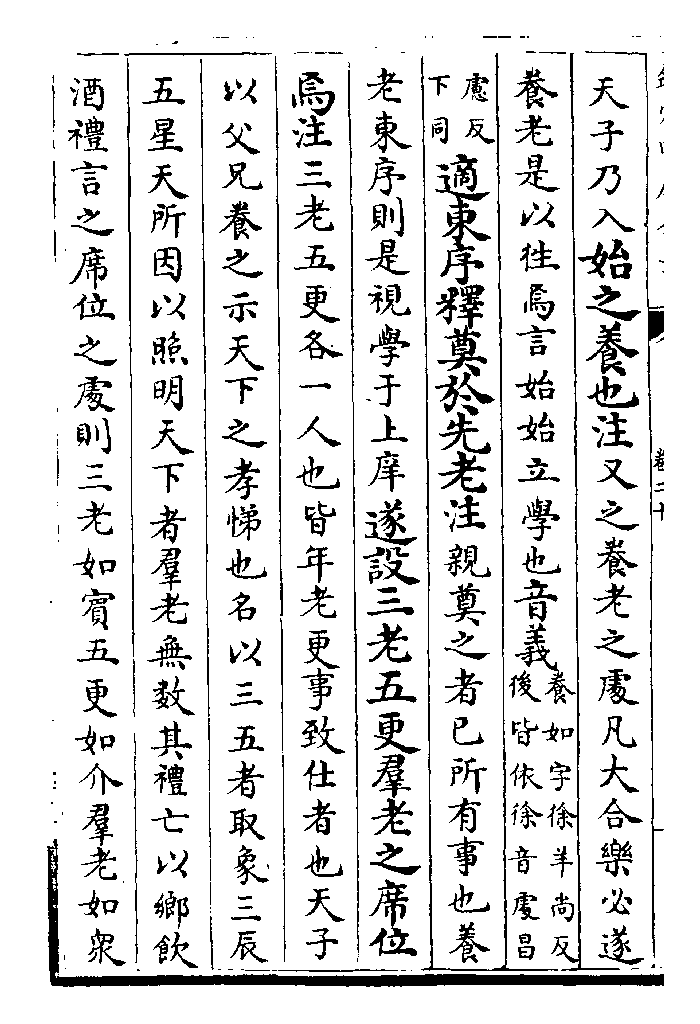 天子乃入始之養也注又之養老之處凡大合樂必遂
養老是以徃焉言始始立學也音義養如字徐羊尚反後皆依徐音處昌
慮反下同適東序釋奠於先老注親奠之者已所有事也養
老東序則是視學于上庠遂設三老五更羣老之席位
焉注三老五更各一人也皆年老更事致仕者也天子
以父兄養之示天下之孝悌也名以三五者取象三辰
五星天所因以照明天下者羣老無數其禮亡以鄉飲
酒禮言之席位之處則三老如賓五更如介羣老如衆
卷二十